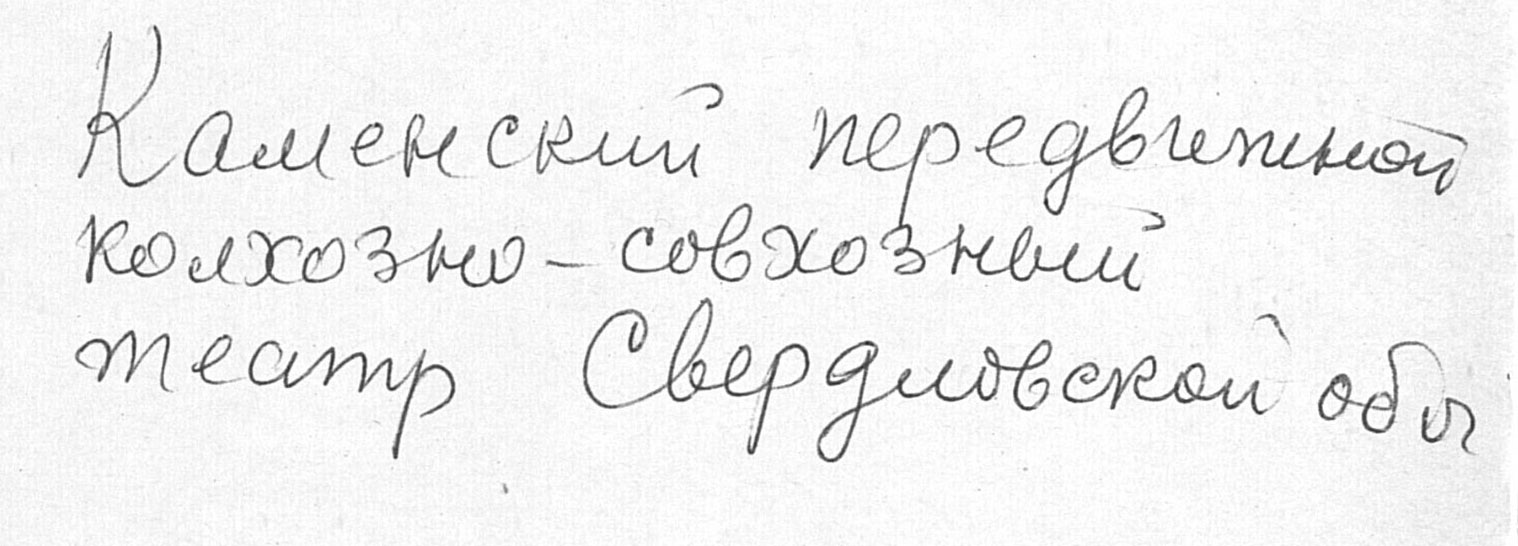 Каменский передвижной
колхозно-совхозный
театр Свердловской обл